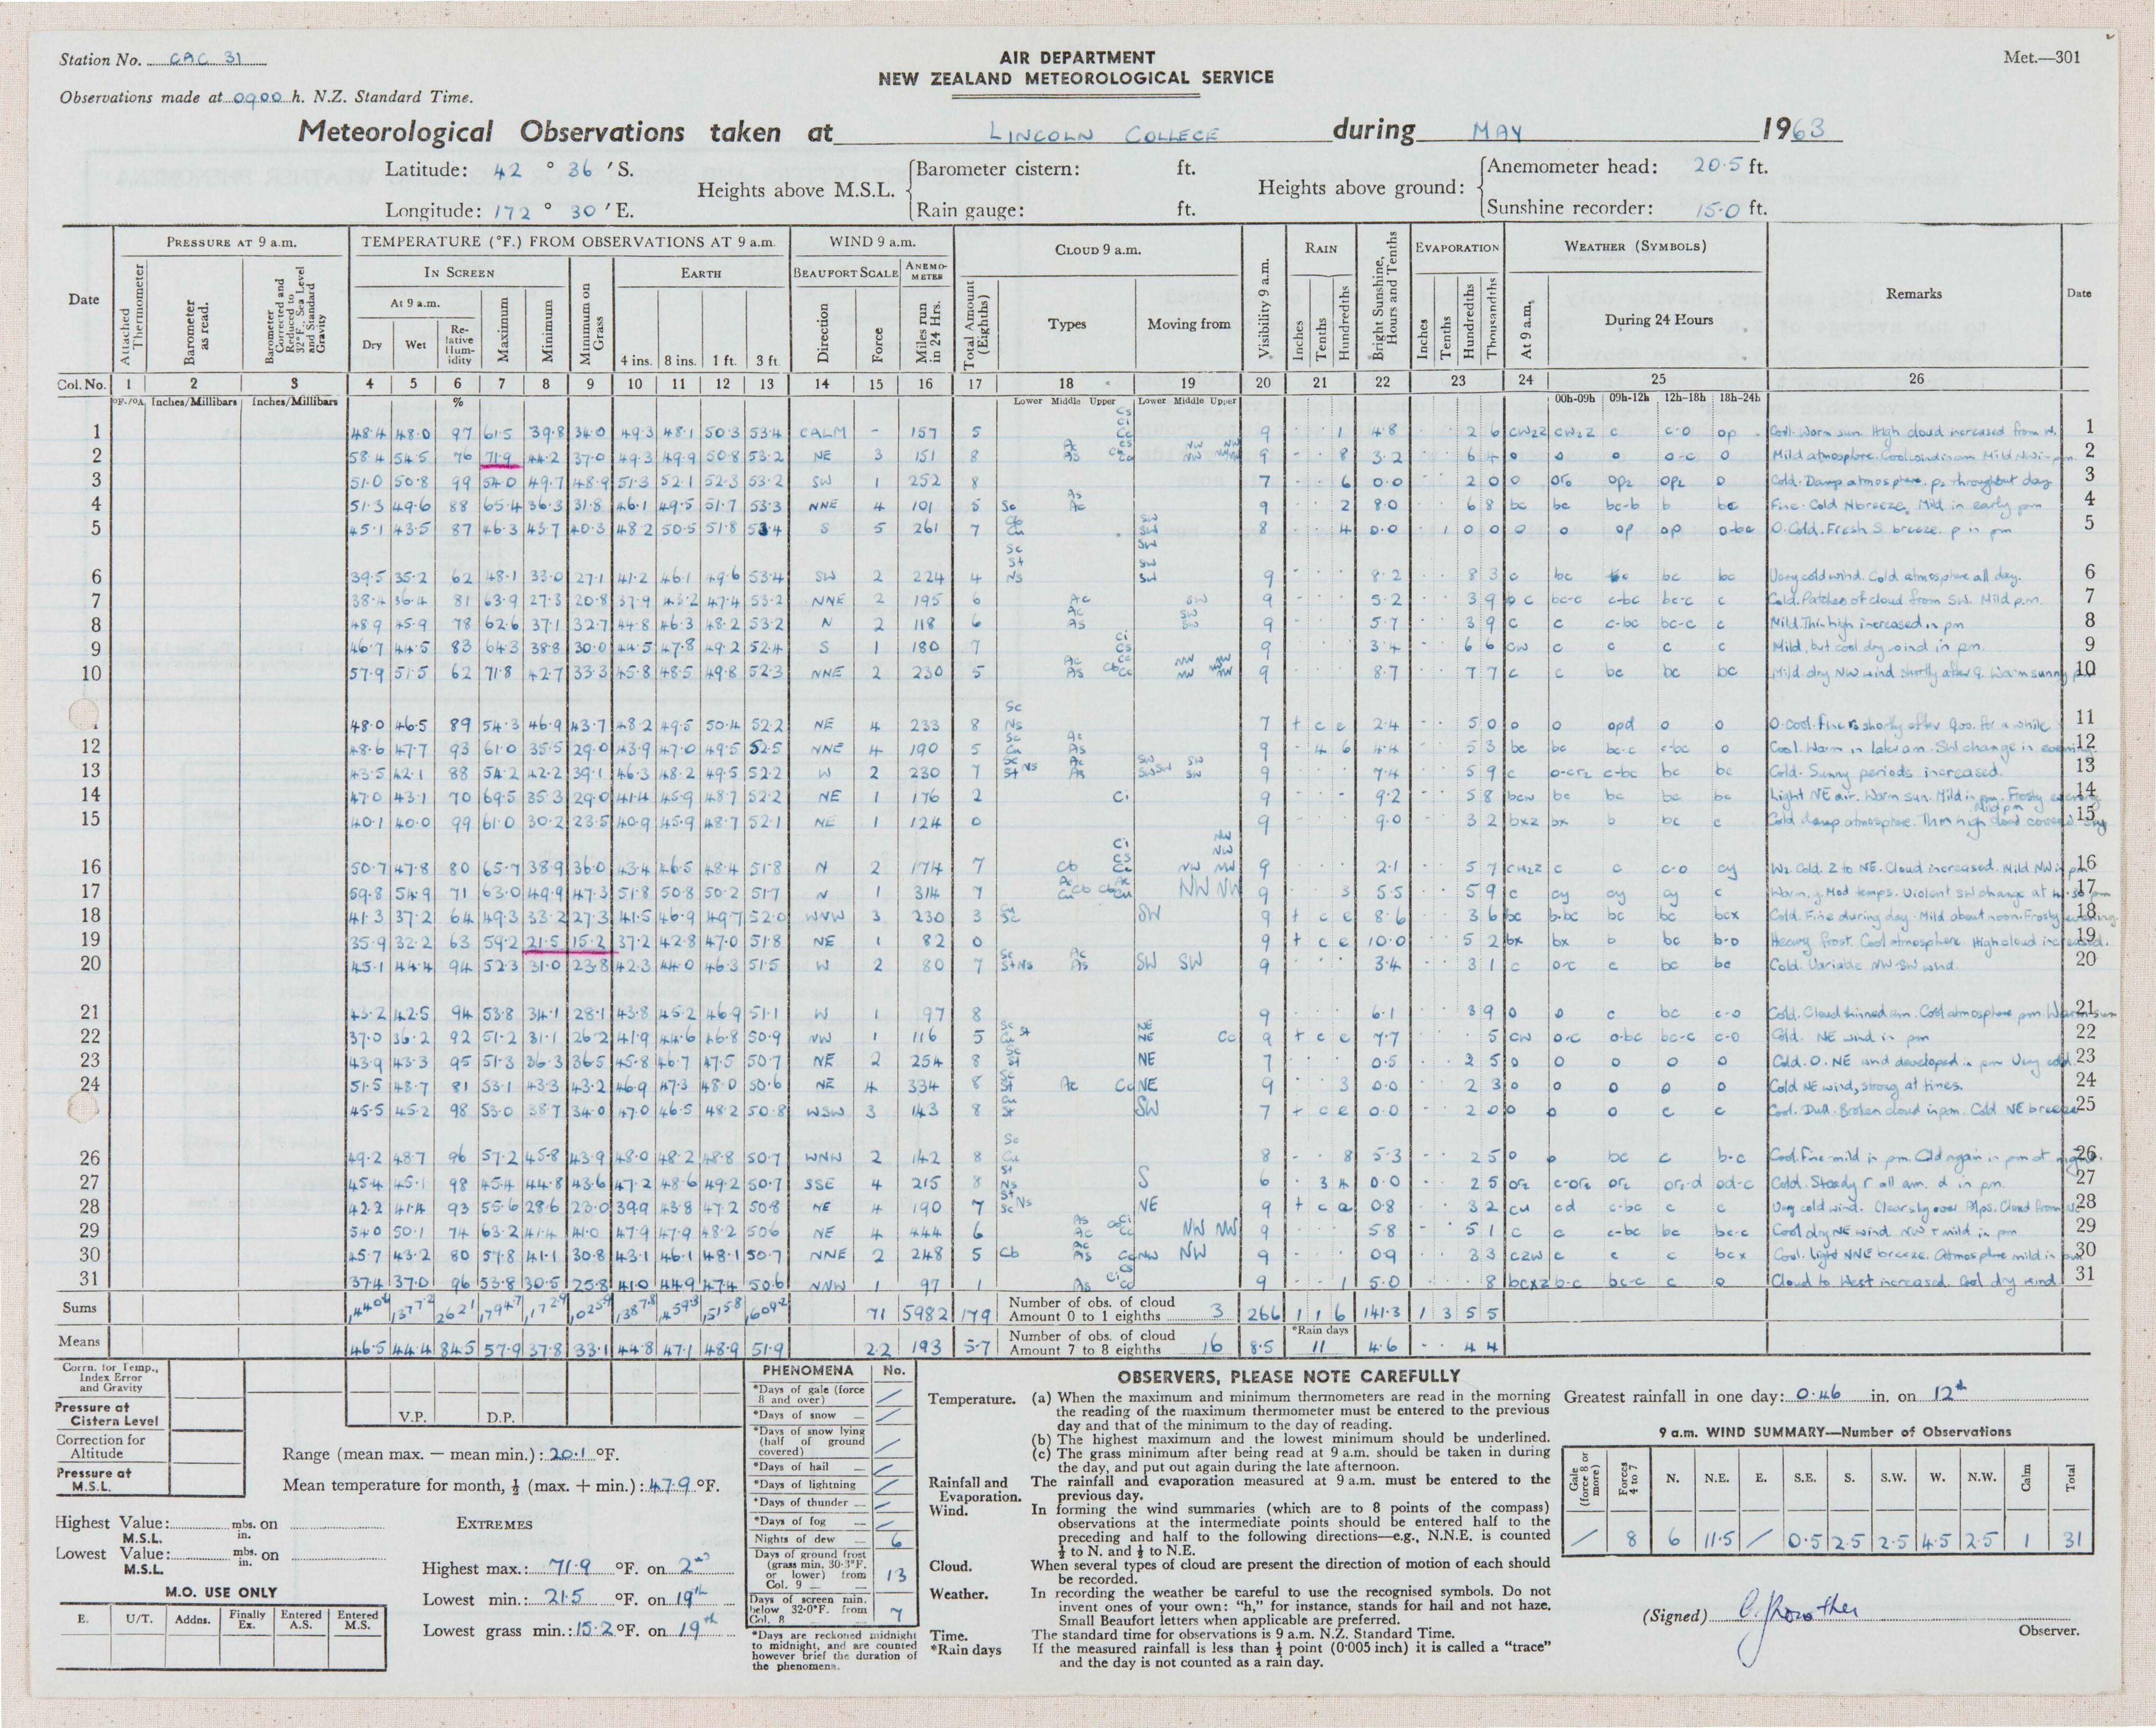 Station No. CAC 31
AIR DEPARTMENT
Met.—301
NEW ZEALAND METEOROLOGICAL SERVICE
Observations made at 0900 h. N.Z. Standard Time.
Meteorological Observations taken at LINCOLN COLLEGE during MAY 1963
Latitude: 42 ° 36 ′ S.
Longitude: 172 ° 30 ′ E.
Heights above M.S.L. Barometer cistern: ft.
Rain gauge: ft.
Heights above ground: Anemometer head: 20.5 ft.
Sunshine recorder: 15.0 ft.
Date PRESSURE AT 9 a.m. TEMPERATURE (°F.) FROM OBSERVATIONS AT 9 a.m. WIND 9 a.m. CLOUD 9 a.m. Visibility 9 a.m. RAIN Bright Sunshine, Hours and Tenths EVAPORATION WEATHER (SYMBOLS) Remarks Date
IN SCREEN Minimum on Grass EARTH BEAUFORT SCALE ANEMO-METER
Attached Thermometer Barometer as read. Barometer Corrected and Reduced to 32°F., Sea Level and Standard Gravity At 9 a.m. Maximum Minimum Direction Force Miles run in 24 Hrs. Total Amount (Eighths) Types Moving from Inches Tenths Hundredths Inches Tenths Hundredths Thousandths At 9 a.m. During 24 Hours
Dry Wet Relative Humidity 4 ins. 8 ins. 1 ft. 3 ft.
Col. No. 1 2 3 4 5 6 7 8 9 10 11 12 13 14 15 16 17 18 19 20 21 22 23 24 25 26
°F./°A. Inches/Millibars Inches/Millibars % Lower Middle Upper Lower Middle Upper 00h-09h 09h-12h 12h-18h 18h-24h
1 48.4 48.0 97 61.5 39.8 34.0 49.3 48.1 50.3 53.4 CALM - 157 5 Cs Ci Cc 9 1 4.8 2 6 cw2z cw2z c c-o op Cool. Warm sun. High cloud increased from W. 1
2 58.4 54.5 76 71.9 44.2 37.0 49.3 49.9 50.8 53.2 NE 3 151 8 Ac As 9 8 3.2 6 4 o o o o-c o Mild atmosphere. 2
3 51.0 50.8 99 54.0 49.7 48.9 51.3 52.1 52.3 53.2 SW 1 252 8 7 6 0.0 2 0 o Cold. Damp atmosphere. throughout day 3
4 51.3 49.6 88 65.4 36.3 31.8 46.1 49.5 51.7 53.3 NNE 4 101 5 Sc As Ac 9 2 8.0 6 8 bc bc bc-b b bc Fine. Cold N breeze. Mild in early pm 4
5 45.1 43.5 87 46.3 43.7 40.3 48.2 50.5 51.8 53.4 S 5 261 7 Cu SW SW 8 4 0.0 1 0 0 o o op op o-bc O. Cold. Fresh S breeze. p in pm 5
6 39.5 35.2 62 48.1 33.0 27.1 41.2 46.1 49.6 53.4 SW 2 224 4 Sc St Ns SW SW SW 9 8.2 8 3 c bc bc bc bc Very cold wind. Cold atmosphere all day. 6
7 38.4 36.4 81 63.9 27.3 20.8 37.9 43.2 47.4 53.2 NNE 2 195 6 Ac SW 9 5.2 3 9 bc-c c-bc bc-c c Cold. Patches of cloud from SW. Mild p.m. 7
8 48.9 45.9 78 62.6 37.1 32.7 44.8 46.3 48.2 53.2 N 2 118 6 Ac As SW SW 9 5.7 3 9 c c c-bc bc-c c Mild. Thin high increased in pm 8
9 46.7 44.5 83 64.3 38.8 30.0 44.5 47.8 49.2 52.4 S 1 180 7 Ci Cs 9 3.4 6 6 cw c c c c Mild, but cool dry wind in pm. 9
10 57.9 51.5 62 71.8 42.7 33.3 45.8 48.5 49.8 52.3 NNE 2 230 5 Ac As NW NW 9 8.7 7 7 c c bc bc bc Mild. dry NW wind shortly after 9. Warm sunny pm 10
48.0 46.5 89 54.3 46.9 43.7 48.2 49.5 50.4 52.2 NE 4 233 8 Sc Ns 7 t c e 2.4 5 0 o o opd o o O. Cool. shortly after 900. for a while 11
12 48.6 47.7 93 61.0 35.5 29.0 43.9 47.0 49.5 52.5 NNE 4 190 5 Sc Cu Ac As 9 4 6 4.4 5 3 bc bc bc-c c-bc o Cool. Warm in later am. SW change in evening. 12
13 43.5 42.1 88 54.2 42.2 39.1 46.3 48.2 49.5 52.2 W 2 230 7 Sc St Ns Ac As SW SW SW SW 9 7.4 5 9 c c-bc bc bc Cold. Sunny periods increased. 13
14 47.0 43.1 70 69.5 35.3 29.0 41.4 45.9 48.7 52.2 NE 1 176 2 Ci 9 9.2 5 8 bcw bc bc bc bc Light NE air. Warm sun. Mild in pm. Frosty evening 14
15 40.1 40.0 99 61.0 30.2 23.5 40.9 45.9 48.7 52.1 NE 1 124 0 9 9.0 3 2 bxz bx b bc c Cold damp atmosphere. Thin high cloud covered sky 15
16 50.7 47.8 80 65.7 38.9 36.0 43.4 46.5 48.4 51.8 N 2 174 7 Cb Ci Cs Cc NW NW NW NW 9 2.1 5 7 c c c-o cy Cold. Z to NE. Cloud increased. Mild NW in pm 16
17 59.8 54.9 71 63.0 49.9 47.3 51.8 50.8 50.2 51.7 N 1 314 7 NW NW 9 3 5.5 5 9 c cy cy cy c Warm. y. Mod temps. Violent SW change at 17
18 41.3 37.2 64 49.3 33.2 27.3 41.5 46.9 49.7 52.0 WNW 3 230 3 Cu Sc SW 9 t c e 8.6 3 6 bc b-bc bc bc bcx Cold. Fine during day. Mild about noon. Frosty evening. 18
19 35.9 32.2 63 59.2 21.5 15.2 37.2 42.8 47.0 51.8 NE 1 82 0 9 t c e 10.0 5 2 bx bx b bc b-o Heavy frost. Cool atmosphere. High cloud increased. 19
20 45.1 44.4 94 52.3 31.0 23.8 42.3 44.0 46.3 51.5 W 2 80 7 Sc St Ns Ac As SW SW 9 3.4 3 1 c o-c c bc bc Cold. Variable NW-SW wind. 20
21 43.2 42.5 94 53.8 34.1 28.1 43.8 45.2 46.9 51.1 W 1 97 8 9 6.1 3 9 o o c bc c-o Cold. Cloud thinned am. Cool atmosphere pm Warm sun 21
22 37.0 36.2 92 51.2 31.1 26.2 41.9 44.6 46.8 50.9 NW 1 116 5 Sc Cu St NE NE Cc 9 t c e 7.7 5 cw o-c o-bc bc-c c-o Cold. NE wind in pm 22
23 43.9 43.3 95 51.3 36.3 36.5 45.8 46.7 47.5 50.7 NE 2 254 8 Sc St NE 7 0.5 2 5 o o o o o Cold. O. NE wind developed in pm Very cold 23
24 51.5 48.7 81 53.1 43.3 43.2 46.9 47.3 48.0 50.6 NE 4 334 8 Sc St Ac Cc NE 9 3 0.0 2 3 o o o o o Cold NE wind, strong at times. 24
45.5 45.2 98 53.0 38.7 34.0 47.0 46.5 48.2 50.8 WSW 3 143 8 Cu St SW 7 t c e 0.0 2 0 o o o c c Cool. Dull. Broken cloud in pm. Cold NE breeze 25
26 49.2 48.7 96 57.2 45.8 43.9 48.0 48.2 48.8 50.7 WNW 2 142 8 Sc Cu 8 8 5.3 2 5 o o bc c b-c Cool. Fine mild in pm. Cold again in pm at night. 26
27 45.4 45.1 98 45.4 44.8 43.6 47.2 48.6 49.2 50.7 SSE 4 215 8 St Ns S 6 3 4 0.0 2 5 od-c Cold. Steady r all am. d in pm. 27
28 42.2 41.4 93 55.6 28.6 23.0 39.9 43.8 47.2 50.8 NE 4 190 7 St Sc Ns NE 9 t c e 0.8 3 2 cd c-bc c c Very cold wind. Clear sky over Alps. Cloud from NE 28
29 54.0 50.1 74 63.2 41.4 41.0 47.9 47.9 48.2 50.6 NE 4 444 6 As Ac Ci NW NW 9 5.8 5 1 c c c-bc bc bc-c Cool dry NE wind. NW + mild in pm 29
30 45.7 43.2 80 57.8 41.1 30.8 43.1 46.1 48.1 50.7 NNE 2 248 5 Cb Ac As Cc NW NW 9 0.9 3 3 czw c c c bcx Cool. light NNE breeze. Atmosphere mild in pm 30
31 37.4 37.0 96 53.8 30.5 25.8 41.0 44.9 47.4 50.6 NNW 1 97 1 As Ci Cs Cc 9 1 5.0 8 bcxz b-c bc-c c o Cloud to West increased. Cool dry wind. 31
Sums 1,440.6 1,377.2 2621 1,794.7 1,172.9 1,025.9 1,387.8 1,459.3 1,515.8 1,609.2 71 5982 179 Number of obs. of cloud Amount 0 to 1 eighths 3 266 1 1 6 141.3 1 3 5 5
Means 46.5 44.4 84.5 57.9 37.8 33.1 44.8 47.1 48.9 51.9 2.2 193 5.7 Number of obs. of cloud Amount 7 to 8 eighths 16 8.5 *Rain days 11 4.6 4 4
Corrn. for Temp., Index Error and Gravity
Pressure at Cistern Level
Correction for Altitude
Pressure at M.S.L.
V.P. D.P.
Range (mean max. — mean min.): 20.1 °F.
Mean temperature for month, ½ (max. + min.): 47.9 °F.
Highest Value: M.S.L. mbs. in. on
Lowest Value: M.S.L. mbs. in. on
EXTREMES
Highest max.: 71.9 °F. on 2nd
Lowest min.: 21.5 °F. on 19th
Lowest grass min.: 15.2 °F. on 19th
M.O. USE ONLY
E. U/T. Addns. Finally Ex. Entered A.S. Entered M.S.
PHENOMENA No.
*Days of gale (force 8 and over) /
*Days of snow — /
*Days of snow lying (half of ground covered) /
*Days of hail — /
*Days of lightning /
*Days of thunder — /
*Days of fog — /
Nights of dew — 6
Days of ground frost (grass min. 30·3°F. or lower) from Col. 9 — 13
Days of screen min. below 32·0°F. from Col. 8 7
*Days are reckoned midnight to midnight, and are counted however brief the duration of the phenomena.
OBSERVERS, PLEASE NOTE CAREFULLY
Temperature. (a) When the maximum and minimum thermometers are read in the morning
the reading of the maximum thermometer must be entered to the previous
day and that of the minimum to the day of reading.
(b) The highest maximum and the lowest minimum should be underlined.
(c) The grass minimum after being read at 9 a.m. should be taken in during
the day, and put out again during the late afternoon.
Rainfall and Evaporation. The rainfall and evaporation measured at 9 a.m. must be entered to the
previous day.
Wind. In forming the wind summaries (which are to 8 points of the compass)
observations at the intermediate points should be entered half to the
preceding and half to the following directions—e.g., N.N.E. is counted
½ to N. and ½ to N.E.
Cloud. When several types of cloud are present the direction of motion of each should
be recorded.
Weather. In recording the weather be careful to use the recognised symbols. Do not
invent ones of your own: "h," for instance, stands for hail and not haze.
Small Beaufort letters when applicable are preferred.
Time. The standard time for observations is 9 a.m. N.Z. Standard Time.
*Rain days If the measured rainfall is less than ½ point (0·005 inch) it is called a "trace"
and the day is not counted as a rain day.
Greatest rainfall in one day: 0.46 in. on 12th
9 a.m. WIND SUMMARY—Number of Observations
Gale (force 8 or more) Forces 4 to 7 N. N.E. E. S.E. S. S.W. W. N.W. Calm Total
/ 8 6 11.5 / 0.5 2.5 2.5 4.5 2.5 1 31
(Signed)
Observer.